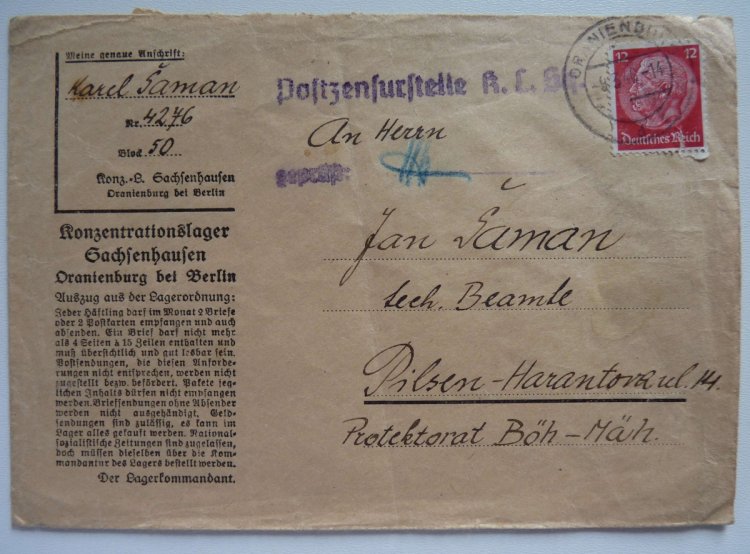 Meine genaue Anschrift:
Karel Šaman
Nr. 4276
Block 50
Konz.-L. Sachsenhausen
Oranienburg bei Berlin
Konzentrationslager
Sachsenhausen
Oranienburg bei Berlin
Auszug aus der Lagerordnung:
Jeder Häftling darf im Monat 2 Briefe
oder 2 Postkarten empfangen und auch
absenden. Ein Brief darf nicht mehr
als 4 Seiten à 15 Zeilen enthalten und
muß übersichtlich und gut lesbar sein.
Postsendungen, die diesen Anforde-
rungen nicht entsprechen, werden nicht
zugestellt bezw. befördert. Pakete jeg-
lichen Inhalts dürfen nicht empfangen
werden. Briefsendungen ohne Absender
werden nicht ausgehändigt. Geld-
sendungen sind zulässig, es kann im
Lager alles gekauft werden. National-
sozialistische Zeitungen sind zugelassen,
doch müssen dieselben über die Kom-
mandantur des Lagers bestellt werden.
Der Lagerkommandant.
Postzensurstelle K. L.
geprüft:
ORANIENBU
12 12
Deutsches Reich
An Herrn
Jan Šaman
tech. Beamte
Pilsen-Harantova ul. 14.
Protektorat Böh-Mäh.